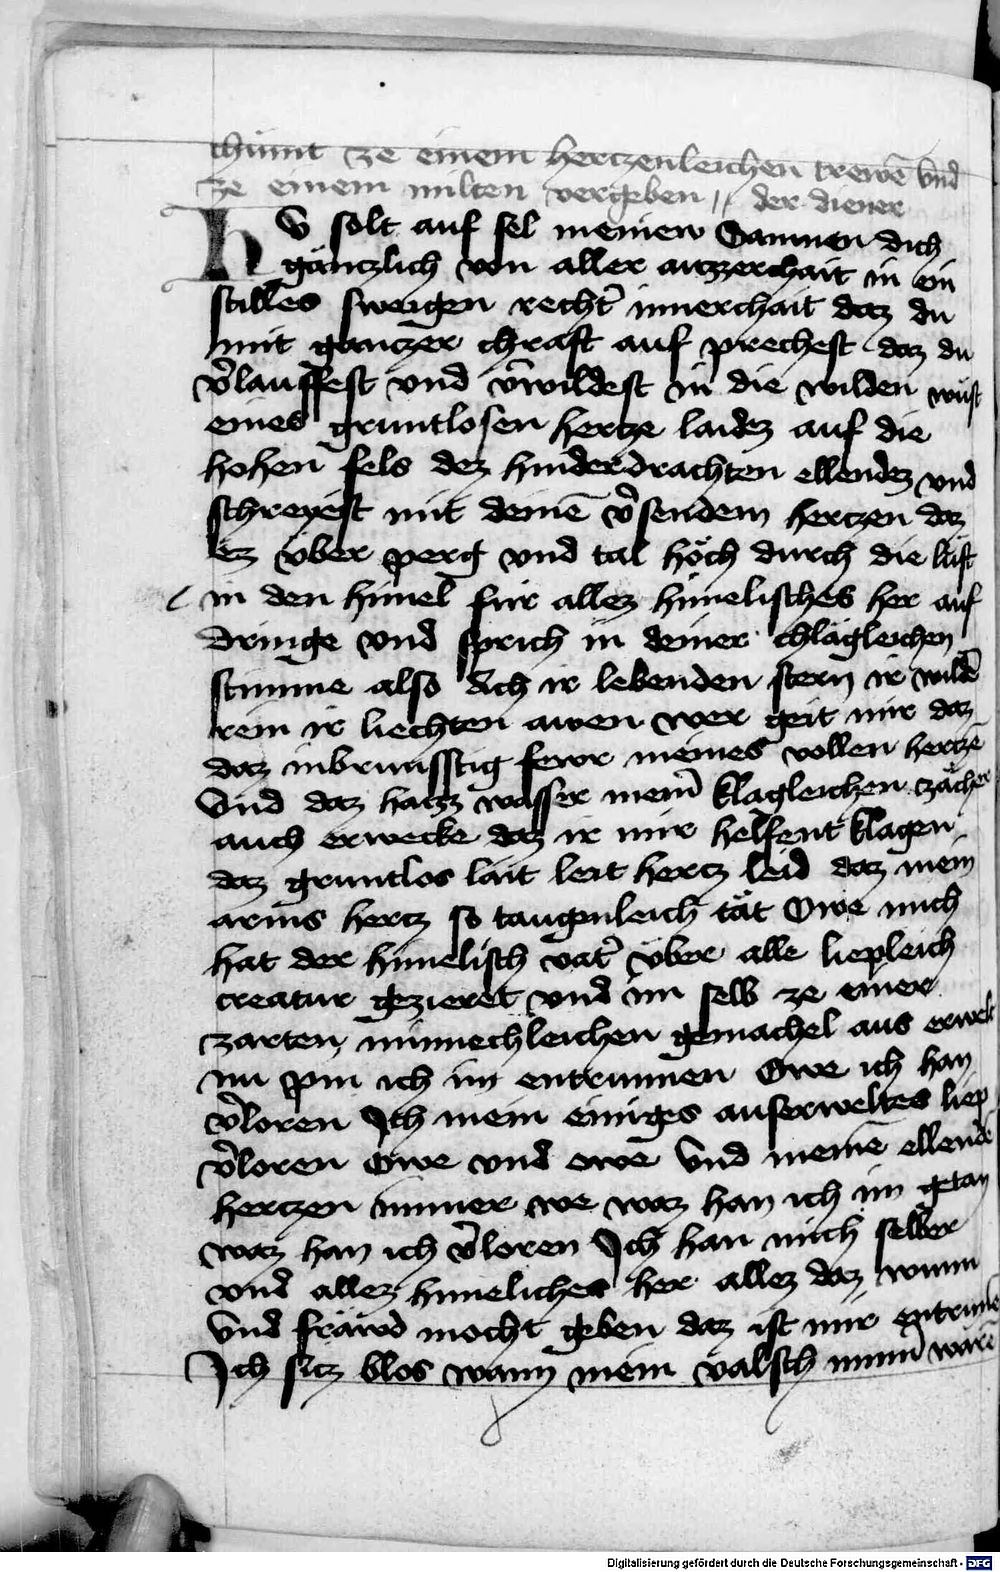 chumt ze einem hertzenleichen trewē vnd
ze einem milten vergeben // der diener
NV solt auf sel meinew Samnen dich
gäntzlich von aller auzzerchait in ein
stilles sweigen recht innerchait daz du
mit gantzer chraft auf prechest daz du
v̉lauffest vnd v̉wildest in die wilden wüst
eines gruntlosen hertze laidez auf die
hohen fels dez hinderdrachten ellendez vnd
schreyest mit deinē v̉sendem hertzen daz
ez über perg vnd tal höch durch die lüft
in den himel für allez himelisches her auf
dringe vnd sprich in deiner chlägleichen
stimme also Ach ir lebenden stern ir wildē
rein ir liechten awen wer geit mir daz
daz inbrunsstig fewr meines vollen hertzē
Vnd daz haizz wasser mein̄ klagleichen zächer
auch erwecke daz ir mir helfent klagen
daz gruntlos lait leit hertz leid daz mein
arms hertz so taugenleich tät Owe mich
hat der himelisch vat̉ über alle liepleich
creatur gezieret vnd im selb ze einer
zarten minnechleichen gemachel aus erwelt
nu pin ich im entrunnen Owe ich han
v̉loren Ich mein einiges auserweltes liep
v̉loren owe vnd owe Vnd meinē ellendē
hertzen immer we waz han ich im getan
waz han ich v̉loren Ich han mich selber
vnd allez himeliches her allez daz wunn
Vnd fräwd mocht geben daz ist mir entrunē
Ich sitz blos wann mein valsch minn̄ warē
Digitalisierung gefördert durch die Deutsche Forschungsgemeinschaft - DFG